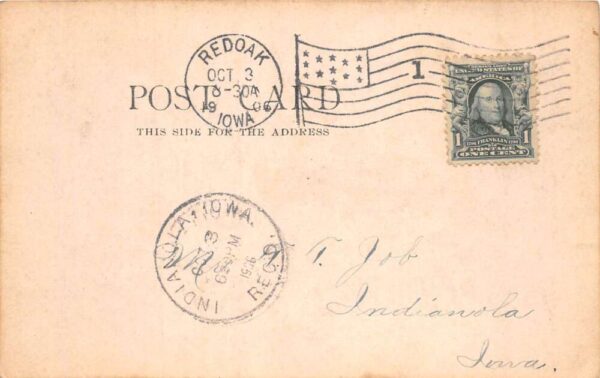 REDOAK
OCT 3
8-30A
19 06
IOWA
1
POST CARD
THIS SIDE FOR THE ADDRESS
1 FRANKLIN 1
POSTAGE
ONE CENT
INDIANOLA, IOWA.
3
PM
1906
REC'D
T. Job
Indianola
Iowa.